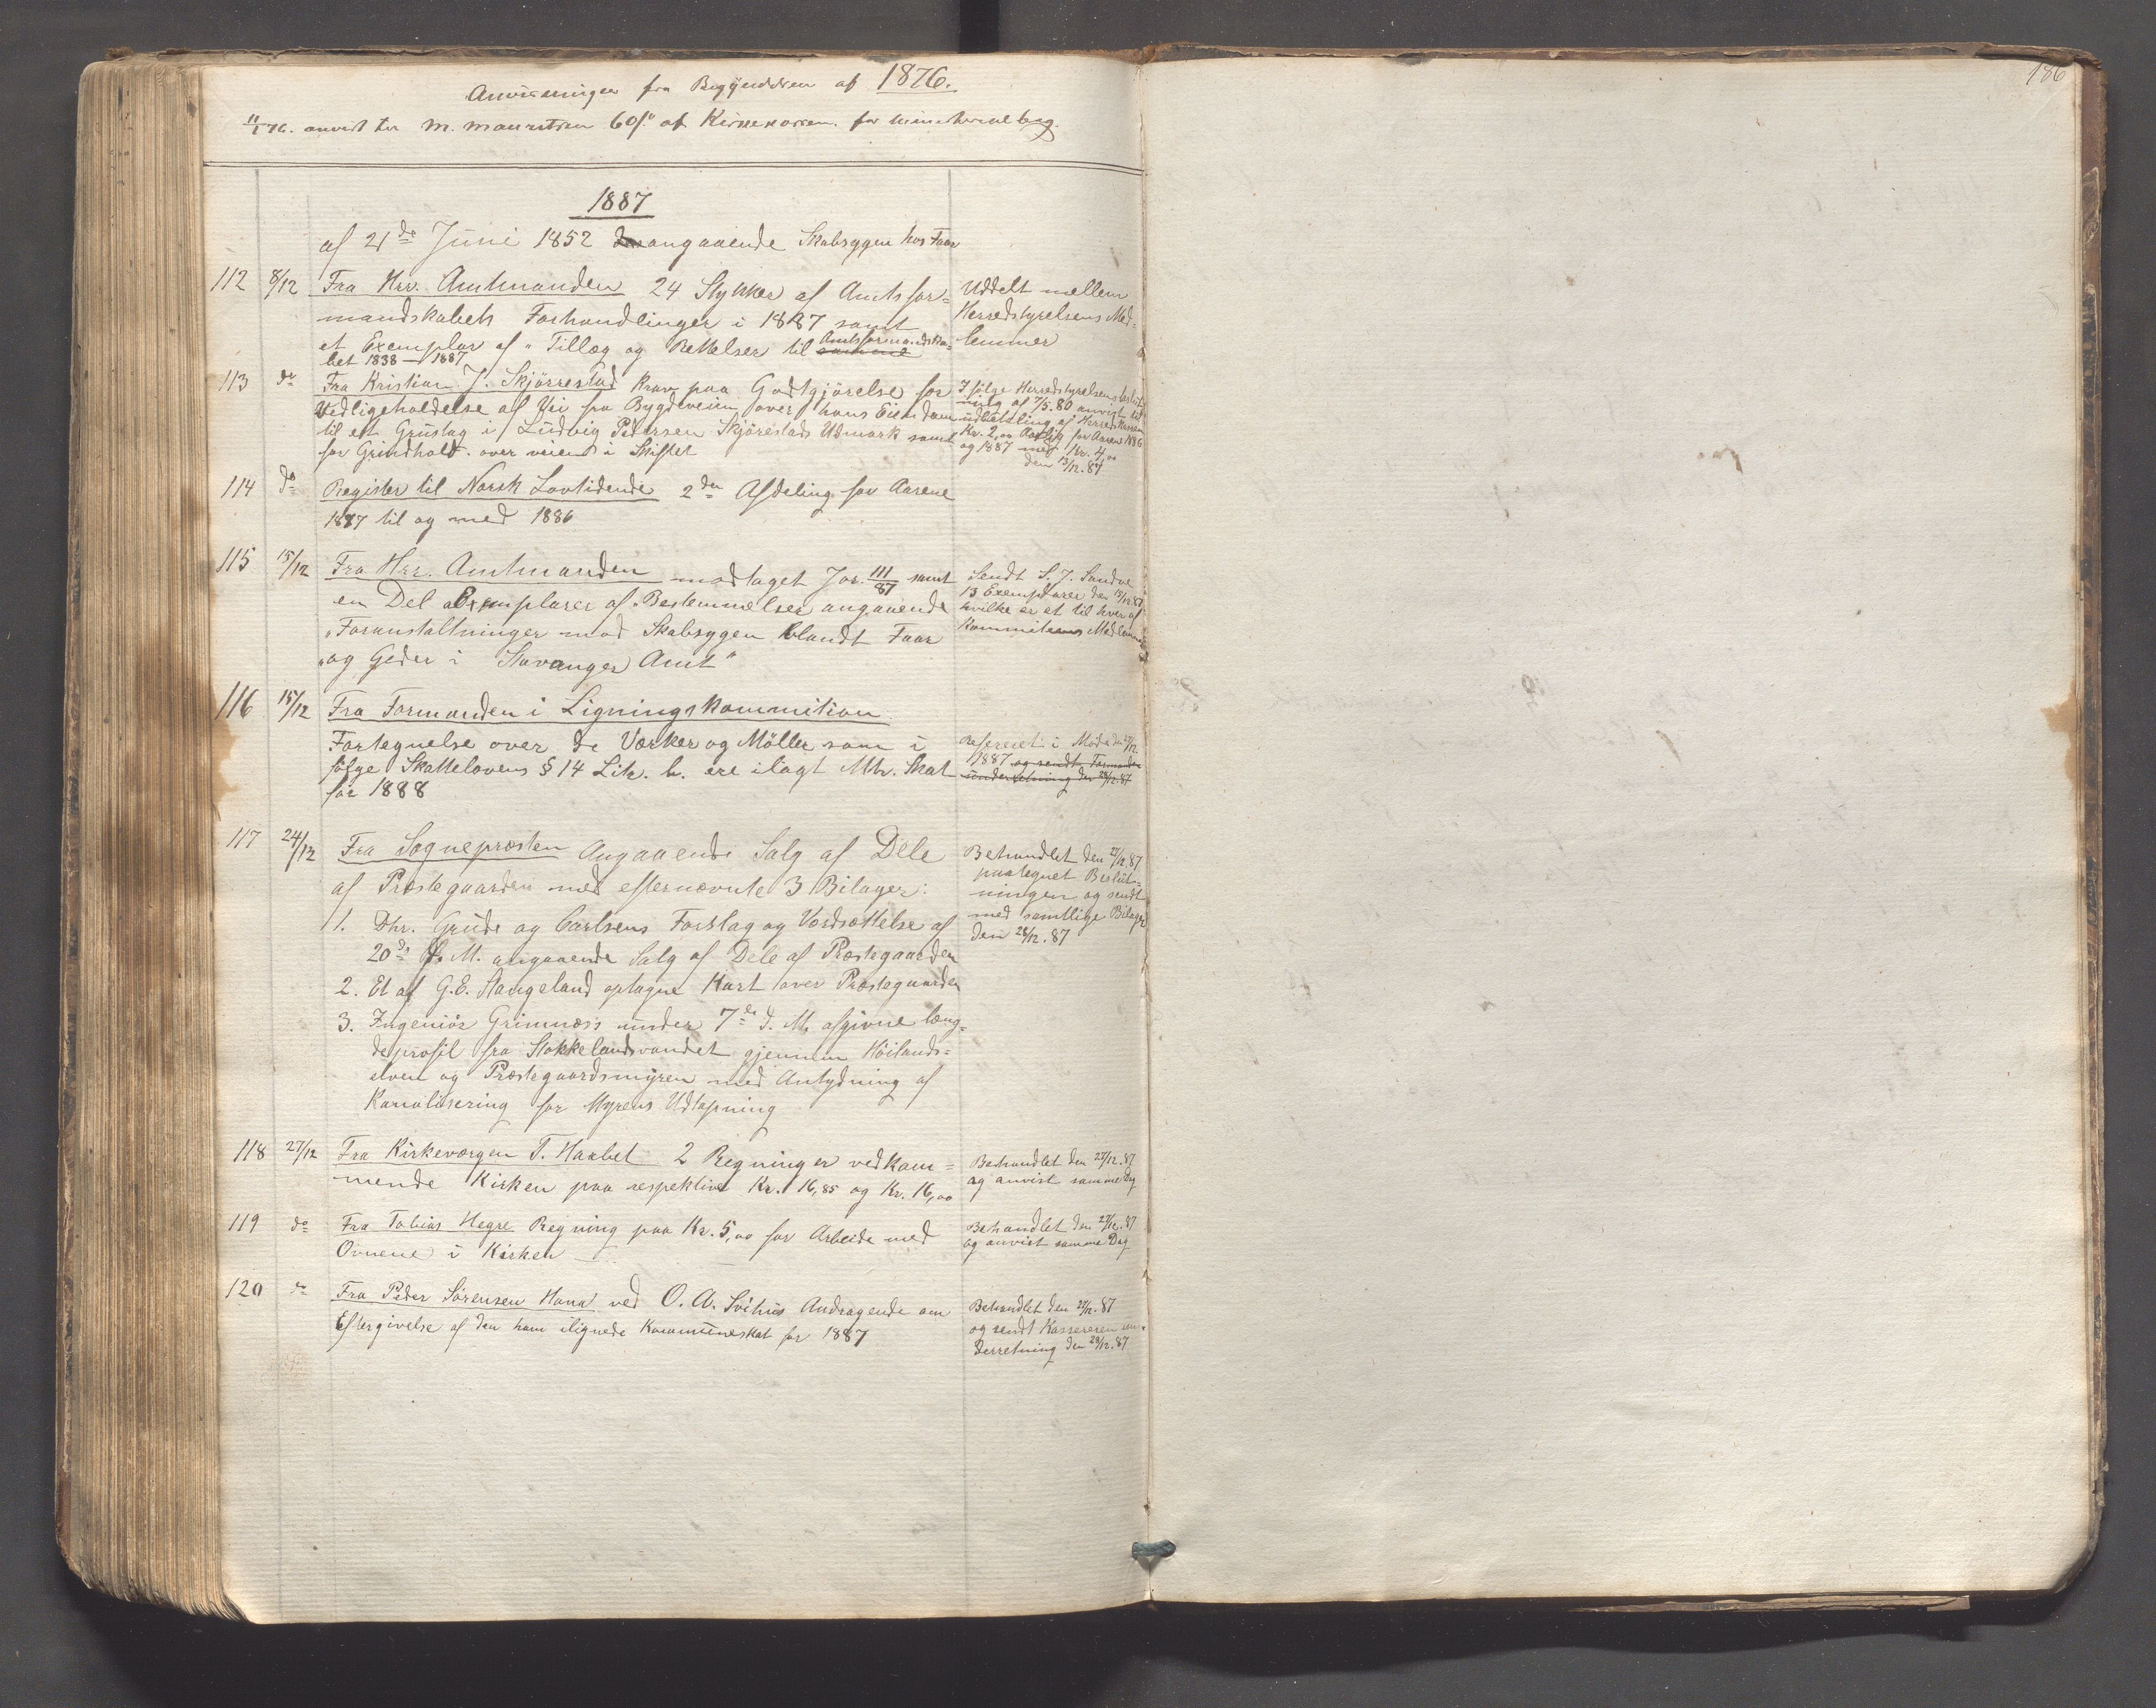 186
Anvisninger fra Begyndelsen af 1876.
11/1 76. anvist til M. Mauritsen 60 f. af Kirkekassen for
1887
af 21de Juni 1852 angaaende Skabsygen hos Faar
112 8/12 Fra Hrr. Amtmanden 24 Stykker af Amtsfor=
mandskabets Forhandlinger i 1887 samt
et Exemplar af "Tillæg og Rettelser til samme Amtsformandska=
bet 1838 – 1887
Uddelt mellem
Herredstyrelsens Med=
lemmer
113 do Fra Kristian J. Skjörrestad Krav paa Godtgjörelse for
Vedligeholdelse af Vei fra Bygdeveien over hans Eiendom
til et Grustag i Ludvig Pedersen Skjörestads Udmark samt
for Grindhold over veien i Skiftet
I fölge Herredstyrelsens Beslut
ning af 7/5.80 anvist til
udbetaling af Herredskassen
Kr. 2,00 Aarlig for Aarene 1886
og 1887 med Kr. 4,00
den 13/12.87
114 do Register til Norsk Lovtidende 2den Afdeling for Aarene
1877 til og med 1886
115 15/12 Fra Hrr. Amtmanden modtaget Jor. 111/87 samt
en Del Exemplarer af "Bestemmelser angaaende
"Foranstaltninger mod Skabsygen blandt Faar
"og Geder i Stavanger Amt"
Sendt S. J. Sandve
13 Exemplarer den 17/12.87
hvilke er et til hver af
Kommitens Medlemmer
116 15/12 Fra Formanden i Ligningskommition
Fortegnelse over de Værker og Möller som i
fölge Skattelovens § 14 Litr. b. ere ilagt Mtr. Skat
for 1888
Refereret i Möde den 27/12.
1887 og sendt Formanden
underretning den 28/12.87
117 24/12 Fra Sognepresten Angaaende Salg af Dele
af Præstegaarden med efternævnte 3 Bilager:
1. Dhr. Grude og Carlsens Forslag og Værdsættelse af
20de d. M. angaaende Salg af Dele af Præstegaarden
2. Et af G. E. Haugeland optagne Kart over Præstegaarden
3. Ingeniör Grimnæss under 7de d. M. afgivne læng=
deprofil fra Stokkelandsvandet gjennem Höilands=
elven og Præstegaardsmyren med Antydning af
Kanalisering for Myrens Udtapning
Behandlet den 27/12.87
paategnet Beslut=
ningen og sendt
med samtlige Bilager
den 28/12.87
118 27/12 Fra Kirkeværgen T. Haabet 2 Regninger vedkom=
mende Kirken paa respektive Kr. 16,85 og Kr. 16,00
Behandlet den 27/12.87
og anvist samme Dag
119 do Fra Tobias Hegre Regning paa Kr. 5,00 for Arbeide med
Ovnene i Kirken
Behandlet den 27/12.87
og anvist samme Dag
120 do Fra Peder Sörensen Hana ved O. A. Svihus Andragende om
Eftergivelse af den ham ilignede Kommuneskat for 1887
Behandlet den 27/12.87
og sendt Kassereren un=
derretning den 28/12.87